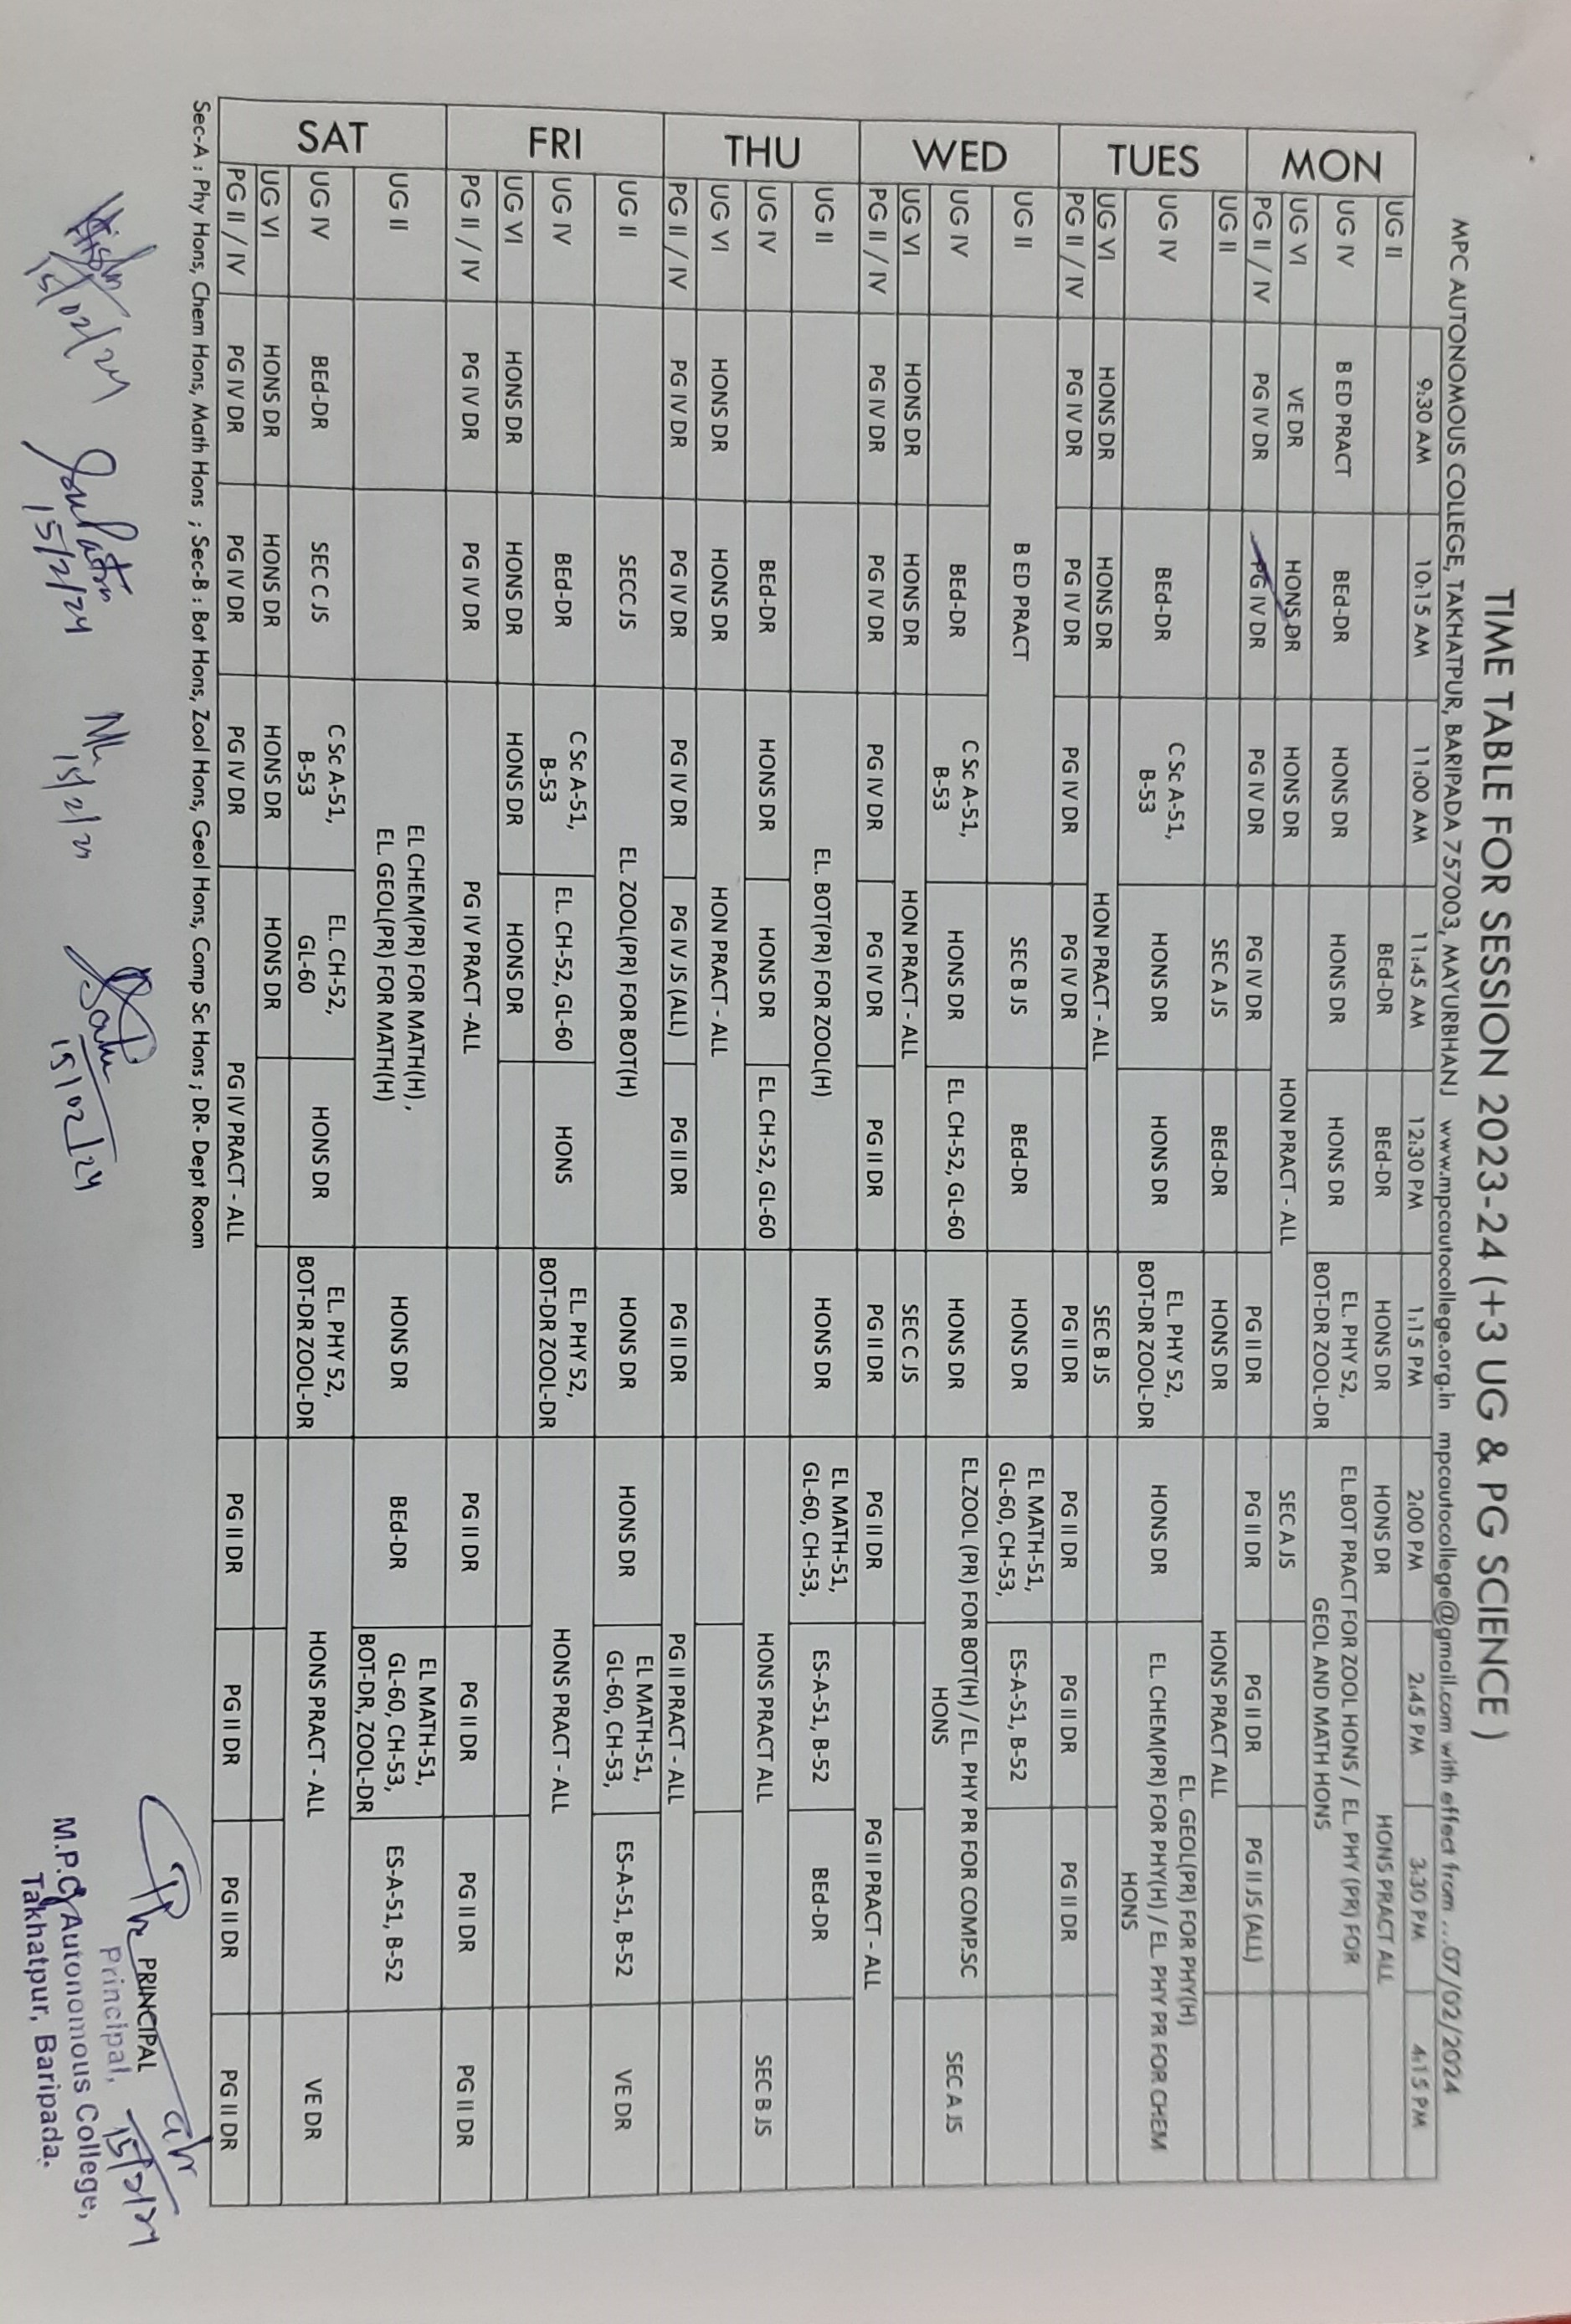 TIME TABLE FOR SESSION 2023-24 (+3 UG & PG SCIENCE )
MPC AUTONOMOUS COLLEGE, TAKHATPUR, BARIPADA 757003, MAYURBHANJ www.mpcautocollege.org.in mpcautocollege@gmail.com with effect from ...07/02/2024
9:30 AM 10:15 AM 11:00 AM 11:45 AM 12:30 PM 1:15 PM 2:00 PM 2:45 PM 3:30 PM 4:15 PM
MON
UG II BEd-DR BEd-DR HONS DR HONS DR HONS PRACT ALL
UG IV B ED PRACT BEd-DR HONS DR HONS DR HONS DR EL. PHY 52, BOT-DR ZOOL-DR EL.BOT PRACT FOR ZOOL HONS / EL. PHY (PR) FOR GEOL AND MATH HONS
UG VI VE DR HONS DR HONS DR HON PRACT - ALL SEC A JS
PG II / IV PG IV DR PG IV DR PG IV DR PG IV DR PG II DR PG II DR PG II DR PG II JS (ALL)
TUES
UG II SEC A JS BEd-DR HONS DR HONS PRACT ALL
UG IV BEd-DR C Sc A-51, B-53 HONS DR HONS DR EL. PHY 52, BOT-DR ZOOL-DR HONS DR EL. GEOL(PR) FOR PHY(H) EL. CHEM(PR) FOR PHY(H) / EL. PHY PR FOR CHEM HONS
UG VI HONS DR HONS DR HON PRACT - ALL SEC B JS
PG II / IV PG IV DR PG IV DR PG IV DR PG IV DR PG II DR PG II DR PG II DR PG II DR
WED
UG II B ED PRACT SEC B JS BEd-DR HONS DR EL MATH-51, GL-60, CH-53, ES-A-51, B-52
UG IV BEd-DR C Sc A-51, B-53 HONS DR EL. CH-52, GL-60 HONS DR EL.ZOOL (PR) FOR BOT(H) / EL. PHY PR FOR COMP.SC HONS SEC A JS
UG VI HONS DR HONS DR HON PRACT - ALL SEC C JS
PG II / IV PG IV DR PG IV DR PG IV DR PG IV DR PG II DR PG II DR PG II DR PG II PRACT - ALL
THU
UG II EL. BOT(PR) FOR ZOOL(H) HONS DR EL MATH-51, GL-60, CH-53, ES-A-51, B-52 BEd-DR
UG IV BEd-DR HONS DR HONS DR EL. CH-52, GL-60 HONS PRACT ALL SEC B JS
UG VI HONS DR HONS DR HON PRACT - ALL
PG II / IV PG IV DR PG IV DR PG IV DR PG IV JS (ALL) PG II DR PG II DR PG II PRACT - ALL
FRI
UG II SECC JS EL. ZOOL(PR) FOR BOT(H) HONS DR HONS DR EL MATH-51, GL-60, CH-53, ES-A-51, B-52 VE DR
UG IV BEd-DR C Sc A-51, B-53 EL. CH-52, GL-60 HONS EL. PHY 52, BOT-DR ZOOL-DR HONS PRACT - ALL
UG VI HONS DR HONS DR HONS DR HONS DR
PG II / IV PG IV DR PG IV DR PG IV PRACT -ALL PG II DR PG II DR PG II DR PG II DR
SAT
UG II EL CHEM(PR) FOR MATH(H) , EL. GEOL(PR) FOR MATH(H) HONS DR BEd-DR EL MATH-51, GL-60, CH-53, BOT-DR, ZOOL-DR ES-A-51, B-52
UG IV BEd-DR SEC C JS C Sc A-51, B-53 EL. CH-52, GL-60 HONS DR EL. PHY 52, BOT-DR ZOOL-DR HONS PRACT - ALL VE DR
UG VI HONS DR HONS DR HONS DR HONS DR
PG II / IV PG IV DR PG IV DR PG IV DR PG IV PRACT - ALL PG II DR PG II DR PG II DR PG II DR
Sec-A : Phy Hons, Chem Hons, Math Hons ; Sec-B : Bot Hons, Zool Hons, Geol Hons, Comp Sc Hons ; DR- Dept Room
15/02/24 15/2/24 15/2/24 15/02/24
15/2/24
PRINCIPAL
Principal,
M.P.C. Autonomous College,
Takhatpur, Baripada.